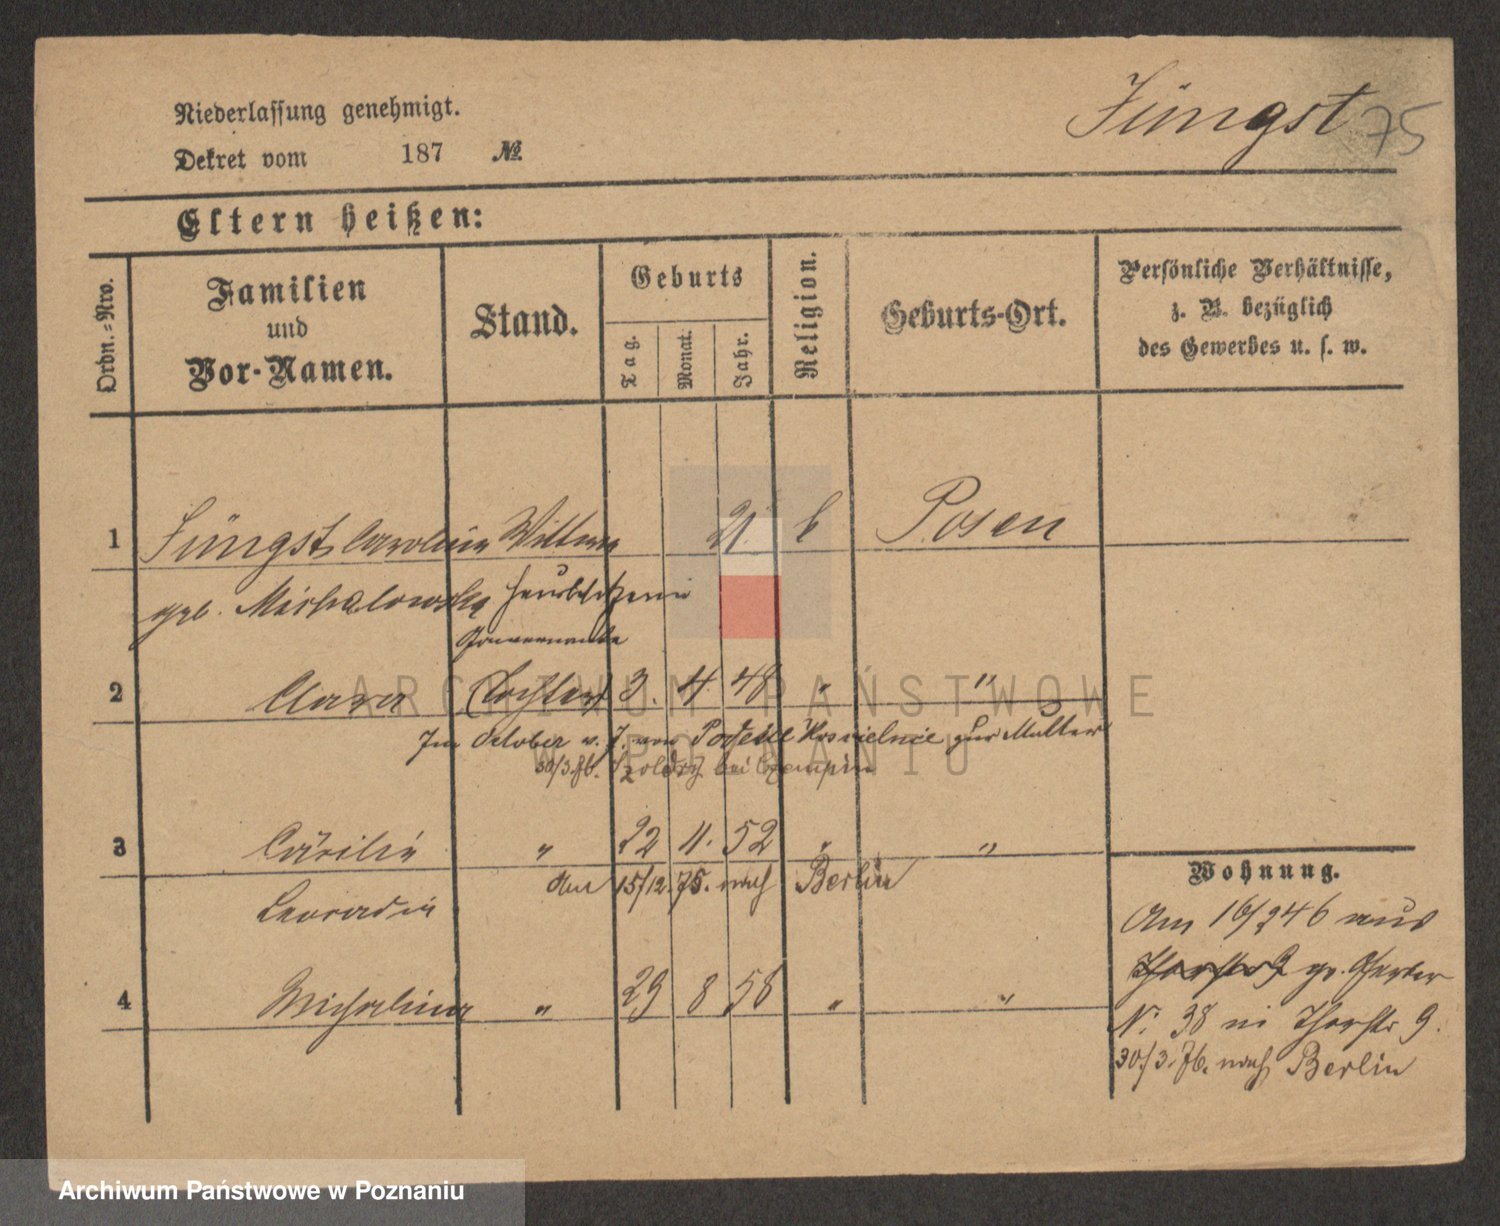 Niederlassung genehmigt.
Jüngst 75
Dekret vom 187 №
Eltern heißen:
Ordn.=Nro.
Familien
und
Vor-Namen.
Stand.
Geburts
Tag.
Monat.
Jahr.
Religion.
Geburts-Ort.
Persönliche Verhältnisse,
z. B. bezüglich
des Gewerbes u. s. w.
1 Jüngst Caroline Wittwe 21. Posen
geb. Michalowska Hausbesitzerin
Gouvernante
2 Clara (Tochter) 3. 4. 48 " "
Im October v. J. von zur Mutter
30/3.76. bei Czempin
3 Cäcilie " 22 11. 52 " "
den 15/12. 75. nach Berlin
Leocadie
4 Michalina " 29 8 58 " "
Wohnung.
Am aus
Thorstr 9 gr. Gerber
N. 38 in Thorstr 9.
30/3.76. nach Berlin
ARCHIWUM PAŃSTWOWE
W POZNANIU
Archiwum Państwowe w Poznaniu